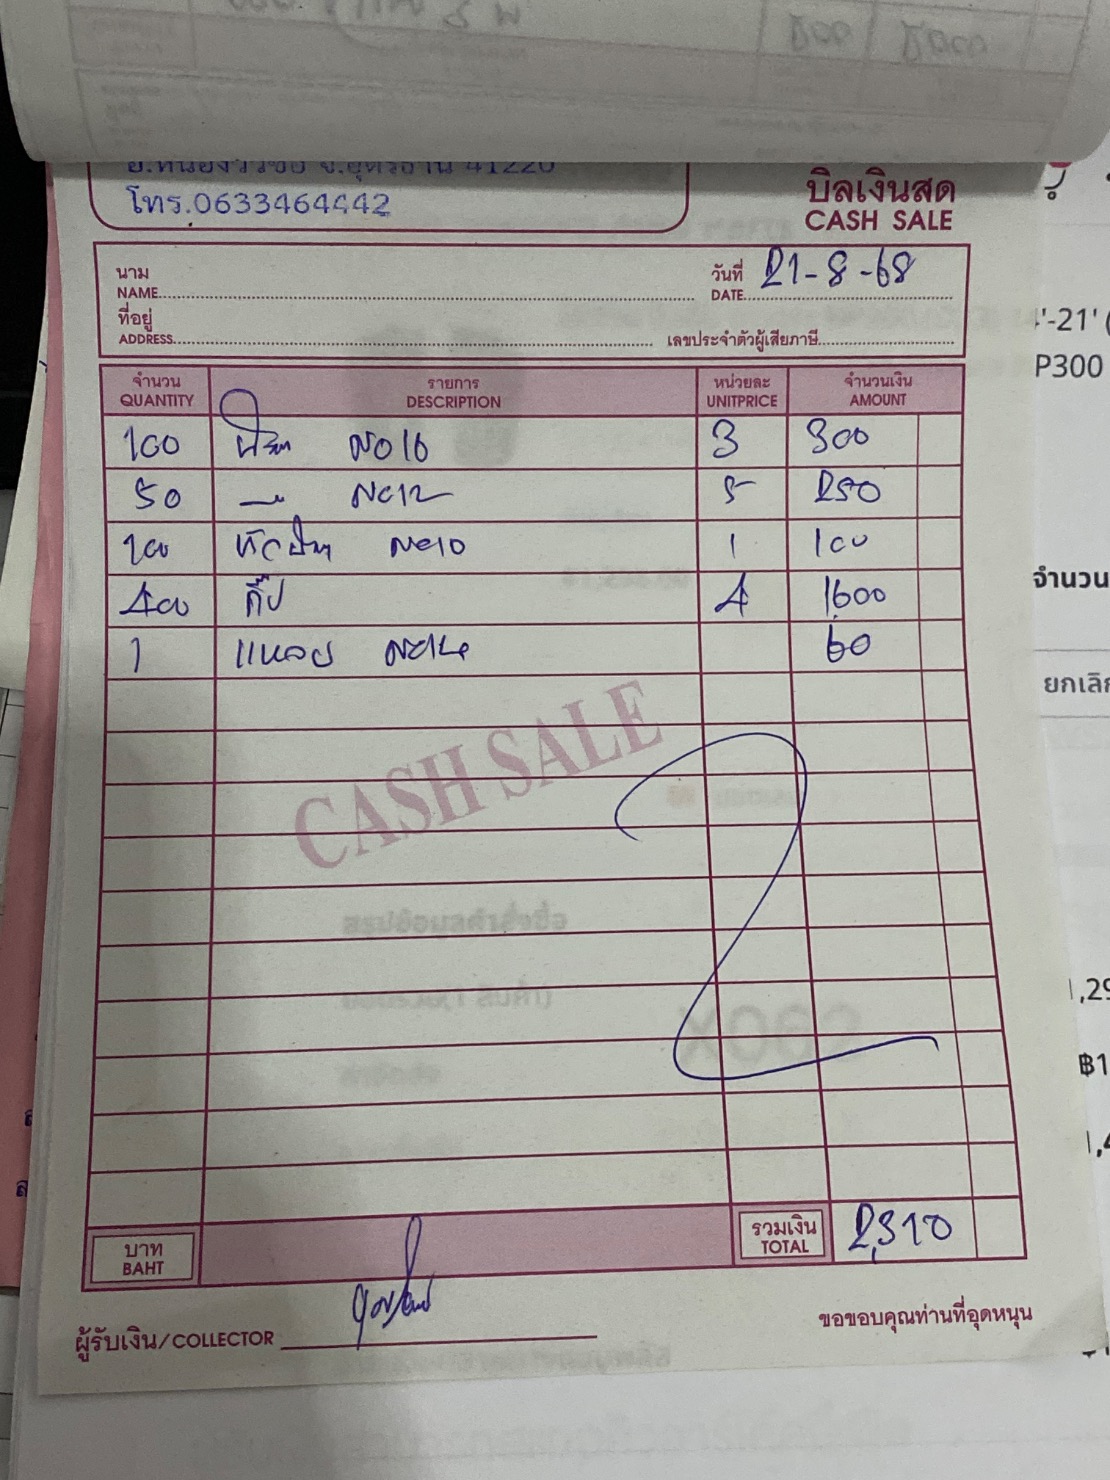 อ.หนองวัวซอ จ.อุดรธานี 41220
โทร.0633464442
บิลเงินสด
CASH SALE
นาม
NAME
วันที่ 21-8-68
DATE
ที่อยู่
ADDRESS
เลขประจำตัวผู้เสียภาษี
จำนวน รายการ หน่วยละ จำนวนเงิน
QUANTITY DESCRIPTION UNITPRICE AMOUNT
100 No 16 3 300
50 No12 5 250
100 No10 1 100
400 กิ๊ป 4 1600
1 No14 60
CASH SALE
บาท
BAHT
รวมเงิน
TOTAL
2,310
ผู้รับเงิน/COLLECTOR
ขอขอบคุณท่านที่อุดหนุน
P300
จำนวน